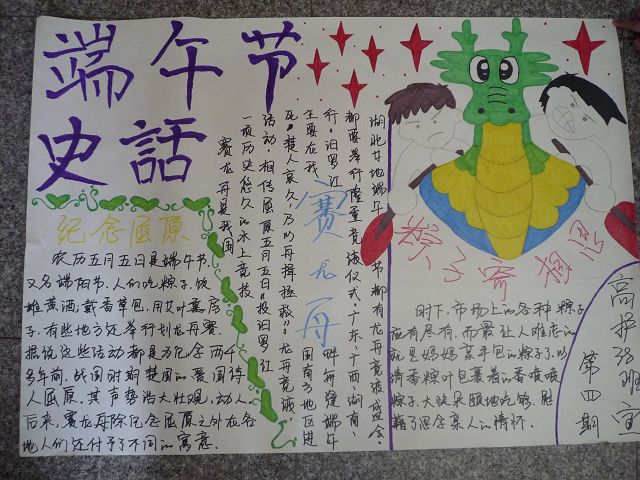 端午节
史话
纪念屈原
农历五月五日是端午节,
又名端阳节。人们吃粽子,饮
雄黄酒,戴香草包,用艾叶熏房
子,有些地方还举行划龙舟赛,
据说这些活动都是为纪念两千
多年前,战国时期楚国的爱国诗
人屈原。其声势浩大壮观,动人
后来,赛龙舟除纪念屈原之外在各
地人们还付予了不同的寓意。
赛龙舟
赛龙舟是我国
一项历史悠久的水上竞技
活动。相传屈原五月五日投汨罗江
死,楚人哀久,乃以舟揖拯救。龙舟竞渡
主要在我国南方地区进
行。汨罗江畔每逢端午
都要举行隆重竞渡仪式。广东、广西、湖南、
湖北廿地端午节都有龙舟竞渡盛会。
粽子寄相思
时下,市场上的各种粽子
应有尽有,而最让人难忘的
就是妈妈亲手包的粽子了,以
清香粽叶包裹着的香喷喷
粽子,大快朵颐地吃够,慰
藉了思念亲人的情怀。
高护38班宣
第四期